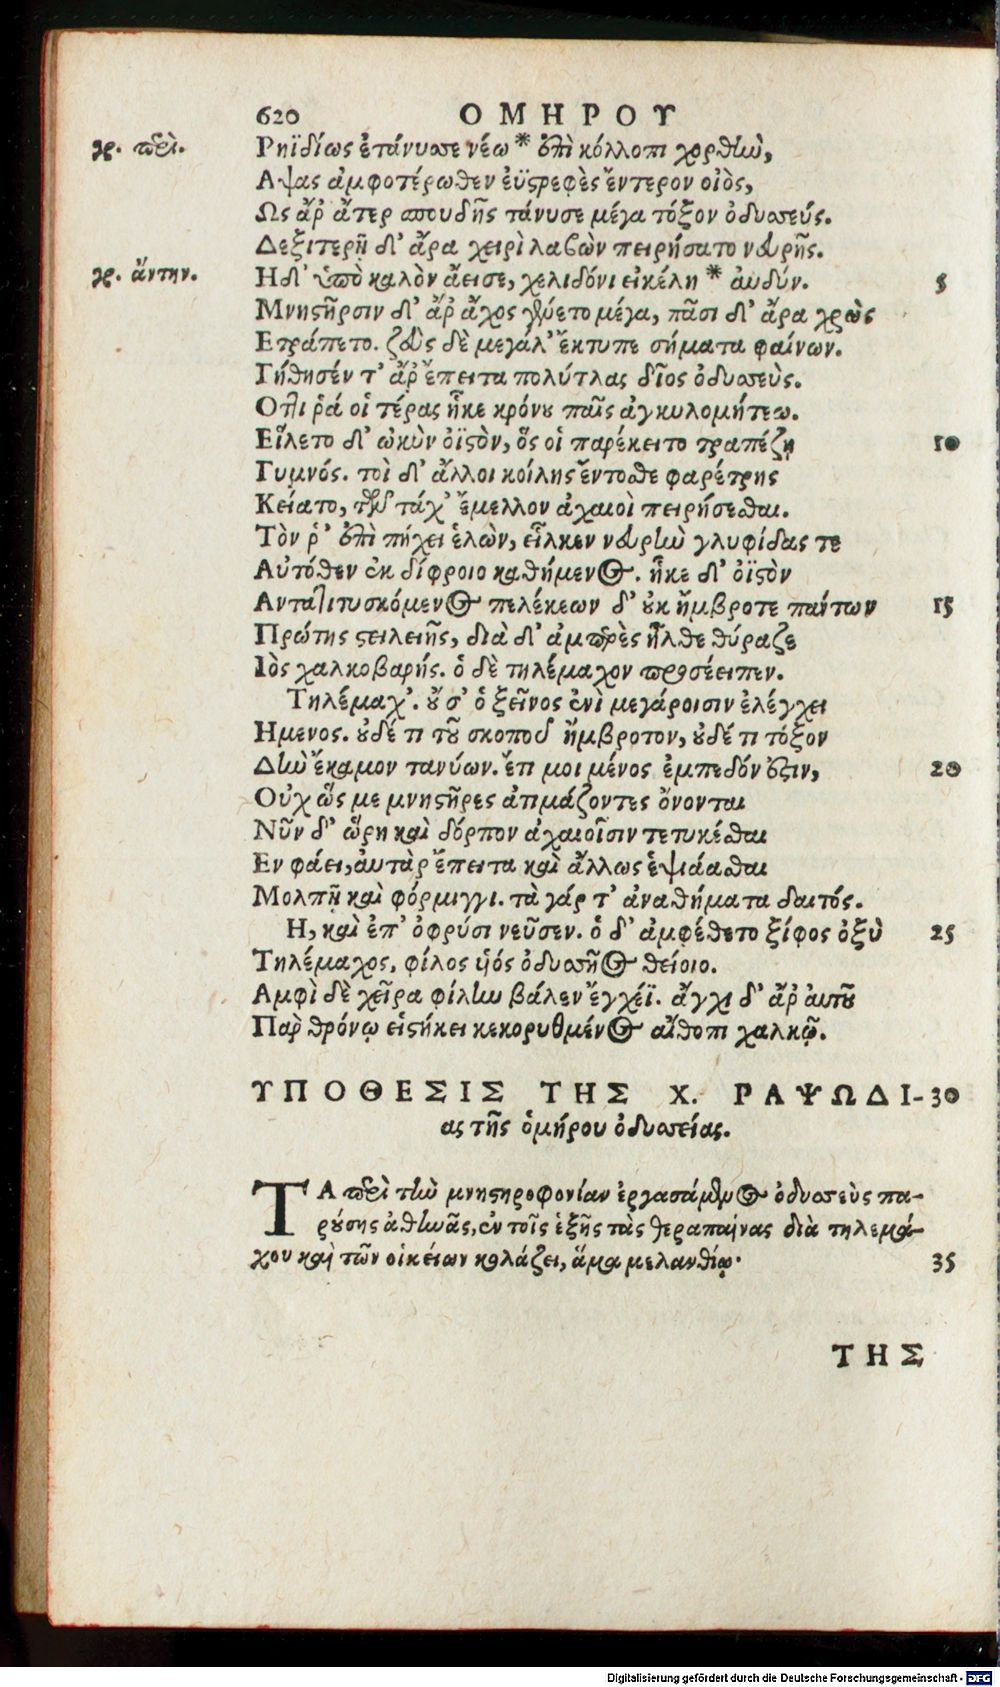 620 ΟΜΗΡΟΥ
γρ. περὶ. Ρηϊδίως ἐτάνυσσε νέῳ * ἐπὶ κόλλοπι χορδὴν,
Αψας ἀμφοτέρωθεν ἐϋστρεφὲς ἔντερον οἰὸς,
Ως ἄρ' ἄτερ σπουδῆς τάνυσε μέγα τόξον ὀδυσσεύς.
Δεξιτερῇ δ' ἄρα χειρὶ λαβὼν πειρήσατο νευρῆς.
γρ. ἄντην. Η δ' ὑπὸ καλὸν ἄεισε, χελιδόνι εἰκέλη * αὐδύν. 5
Μνηστῆρσιν δ' ἄρ' ἄχος γένετο μέγα, πᾶσι δ' ἄρα χρὼς
Ετράπετο. ζεὺς δὲ μεγάλ' ἔκτυπε σήματα φαίνων.
Γήθησέν τ' ἄρ' ἔπειτα πολύτλας δῖος ὀδυσσεὺς.
Οττι ῥά οἱ τέρας ἧκε κρόνου παῖς ἀγκυλομήτεω.
Εἵλετο δ' ὠκὺν ὀϊστὸν, ὅς οἱ παρέκειτο τραπέζῃ 10
Γυμνός. τοὶ δ' ἄλλοι κοίλης ἔντοσθε φαρέτρης
Κείατο, τῶν τάχ' ἔμελλον ἀχαιοὶ πειρήσεσθαι.
Τὸν ῥ' ἐπὶ πήχει ἑλὼν, εἷλκεν νευρὴν γλυφίδας τε
Αὐτόθεν ἐκ δίφροιο καθήμενος. ἧκε δ' ὀϊστὸν
Αντατιτυσκόμενος πελέκεων δ' οὐκ ἤμβροτε πάντων 15
Πρώτης στειλειῆς, διὰ δ' ἀμπερὲς ἦλθε θύραζε
Ιὸς χαλκοβαρής. ὁ δὲ τηλέμαχον προσέειπεν.
Τηλέμαχ'. οὔ σ' ὁ ξεῖνος ἐνὶ μεγάροισιν ἐλέγχει
Ημενος. οὐδέ τι τοῦ σκοποῦ ἤμβροτον, οὐδέ τι τόξον
Δὴν ἔκαμον τανύων. ἔτι μοι μένος ἐμπεδόν ἐστιν, 20
Οὐχ ὥς με μνηστῆρες ἀτιμάζοντες ὄνονται
Νῦν δ' ὥρη καὶ δόρπον ἀχαιοῖσιν τετυκέσθαι
Εν φάει, αὐτὰρ ἔπειτα καὶ ἄλλως ἑψιάασθαι
Μολπῇ καὶ φόρμιγγι. τὰ γάρ τ' ἀναθήματα δαιτός.
Η, καὶ ἐπ' ὀφρύσι νεῦσεν. ὁ δ' ἀμφέθετο ξίφος ὀξὺ 25
Τηλέμαχος, φίλος υἱός ὀδυσσῆος θείοιο.
Αμφὶ δὲ χεῖρα φίλην βάλεν ἔγχεϊ. ἄγχι δ' ἄρ' αὐτοῦ
Παρ θρόνῳ εἱστήκει κεκορυθμένος αἴθοπι χαλκῷ.
ΥΠΟΘΕΣΙΣ ΤΗΣ Χ. ΡΑΨΩΔΙ- 30
ας τῆς ὁμήρου ὀδυσσείας.
ΤΑ περὶ τὴν μνηστηροφονίαν ἐργασάμενος ὀδυσσεὺς πα-
ρούσης ἀθηνᾶς, ἐν τοῖς ἑξῆς τὰς θεραπαίνας διὰ τηλεμά-
χου καὶ τῶν οἰκείων κολάζει, ἅμα μελανθίῳ· 35
ΤΗΣ
Digitalisierung gefördert durch die Deutsche Forschungsgemeinschaft - DFG